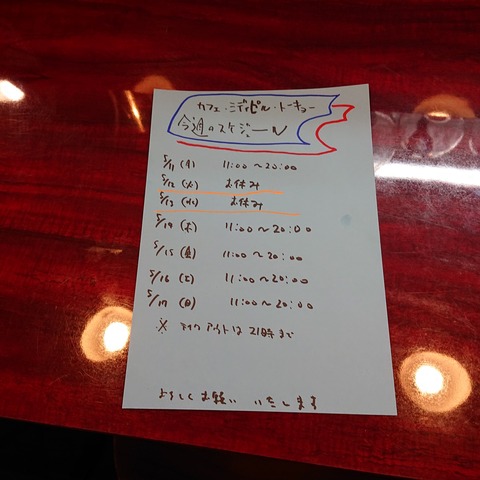 カフェ・ミディピル・トーキョー
今週のスケジュール
5/11 (月) 11:00〜20:00
5/12 (火) お休み
5/13 (水) お休み
5/14 (木) 11:00〜20:00
5/15 (金) 11:00〜20:00
5/16 (土) 11:00〜20:00
5/17 (日) 11:00〜20:00
※ テイクアウトは21時まで
よろしくお願いいたします